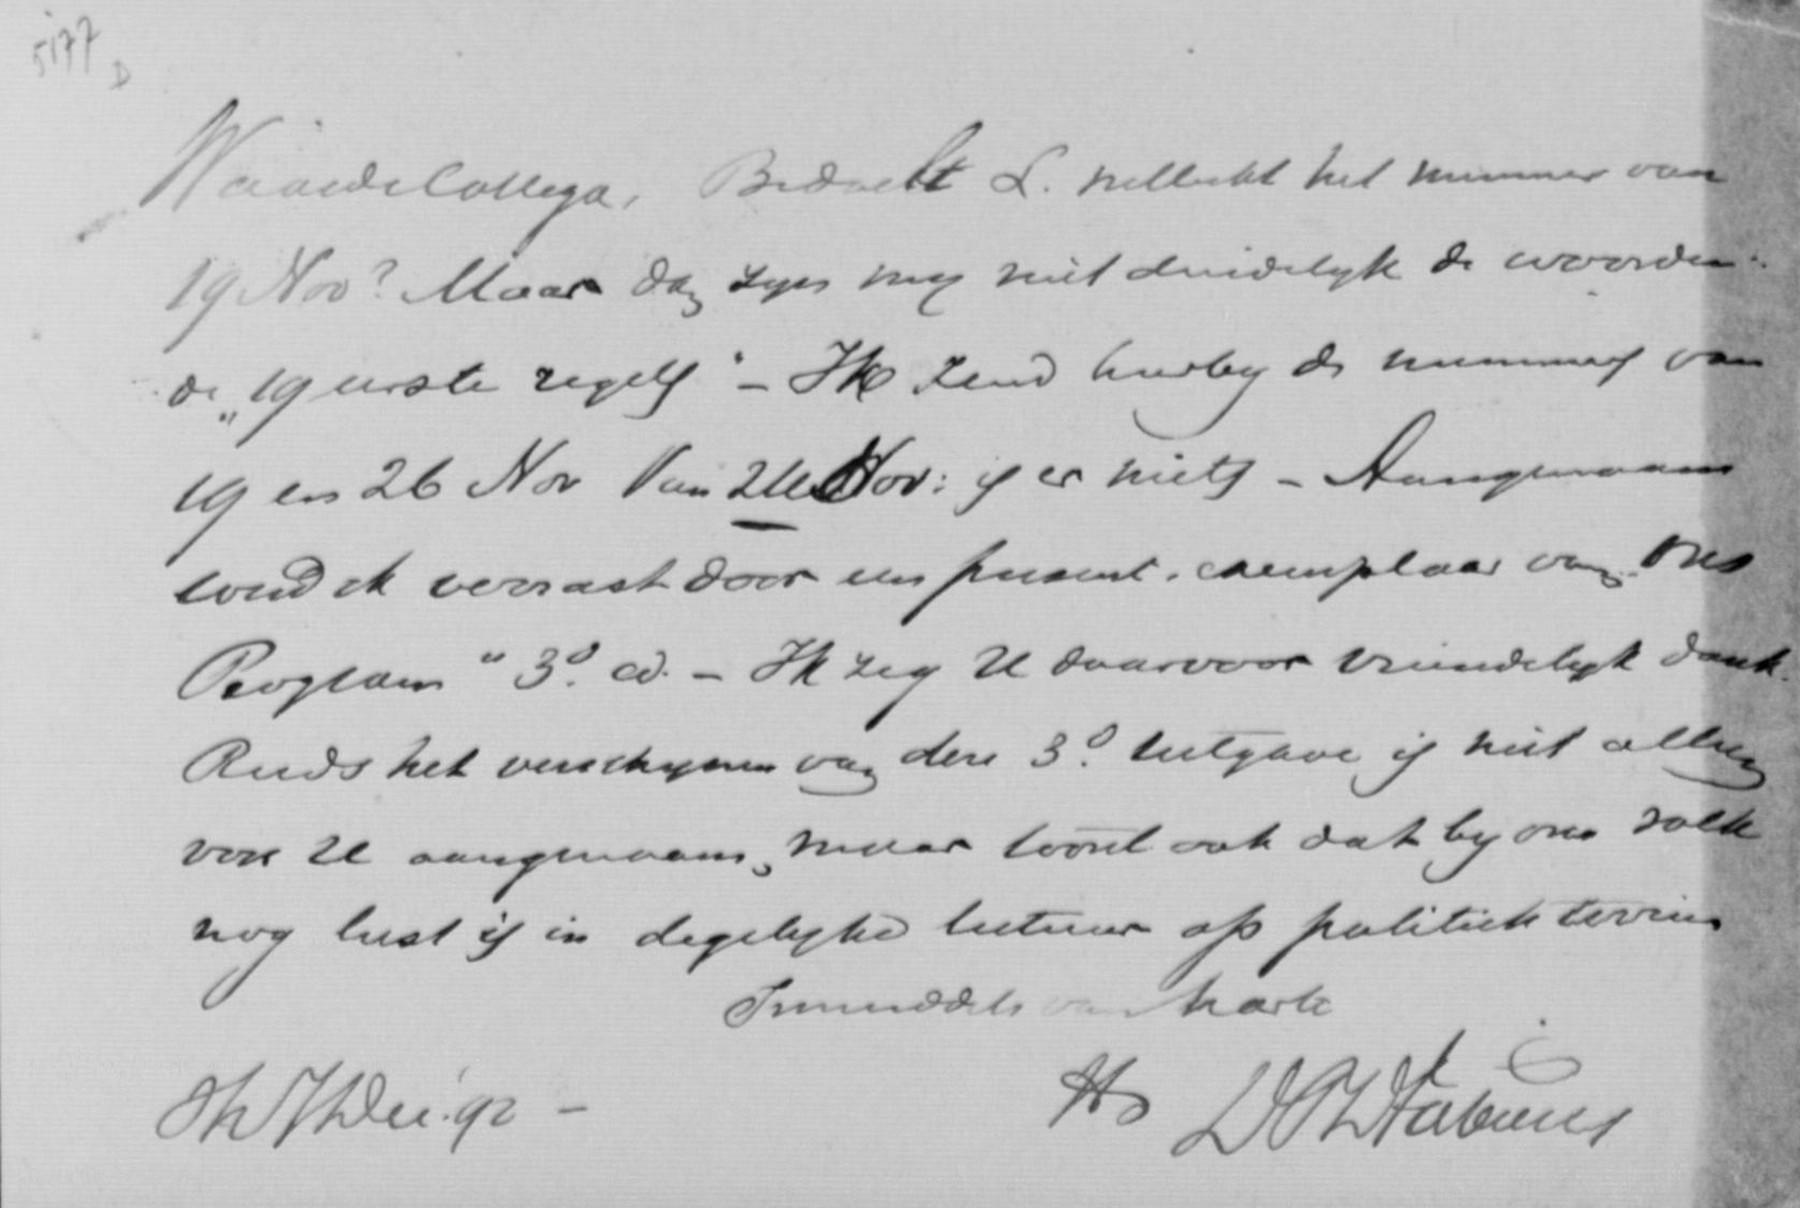 5177
D
Waarde Collega, Bedoelt L. wellicht het nummer van
19 Nov? Maar dan zyn my niet duidelyk de woorden:
de „19 eerste regels" – Ik zend hierby de nummers van
19 en 26 Nov Van 24 Nov: is er niets – Aangenaam
werd ik verrast door een present-exemplaar van Ons
Program" 3e. ed. – Ik zeg U daarvoor vriendelyk dank.
Reeds het verschynen van deze 3e. uitgave is niet alleen
voor U aangenaam, maar toont ook dat by ons volk
nog lust is in degelyke lectuur op politiek terrein
Inmiddels van harte
DPD Fabius